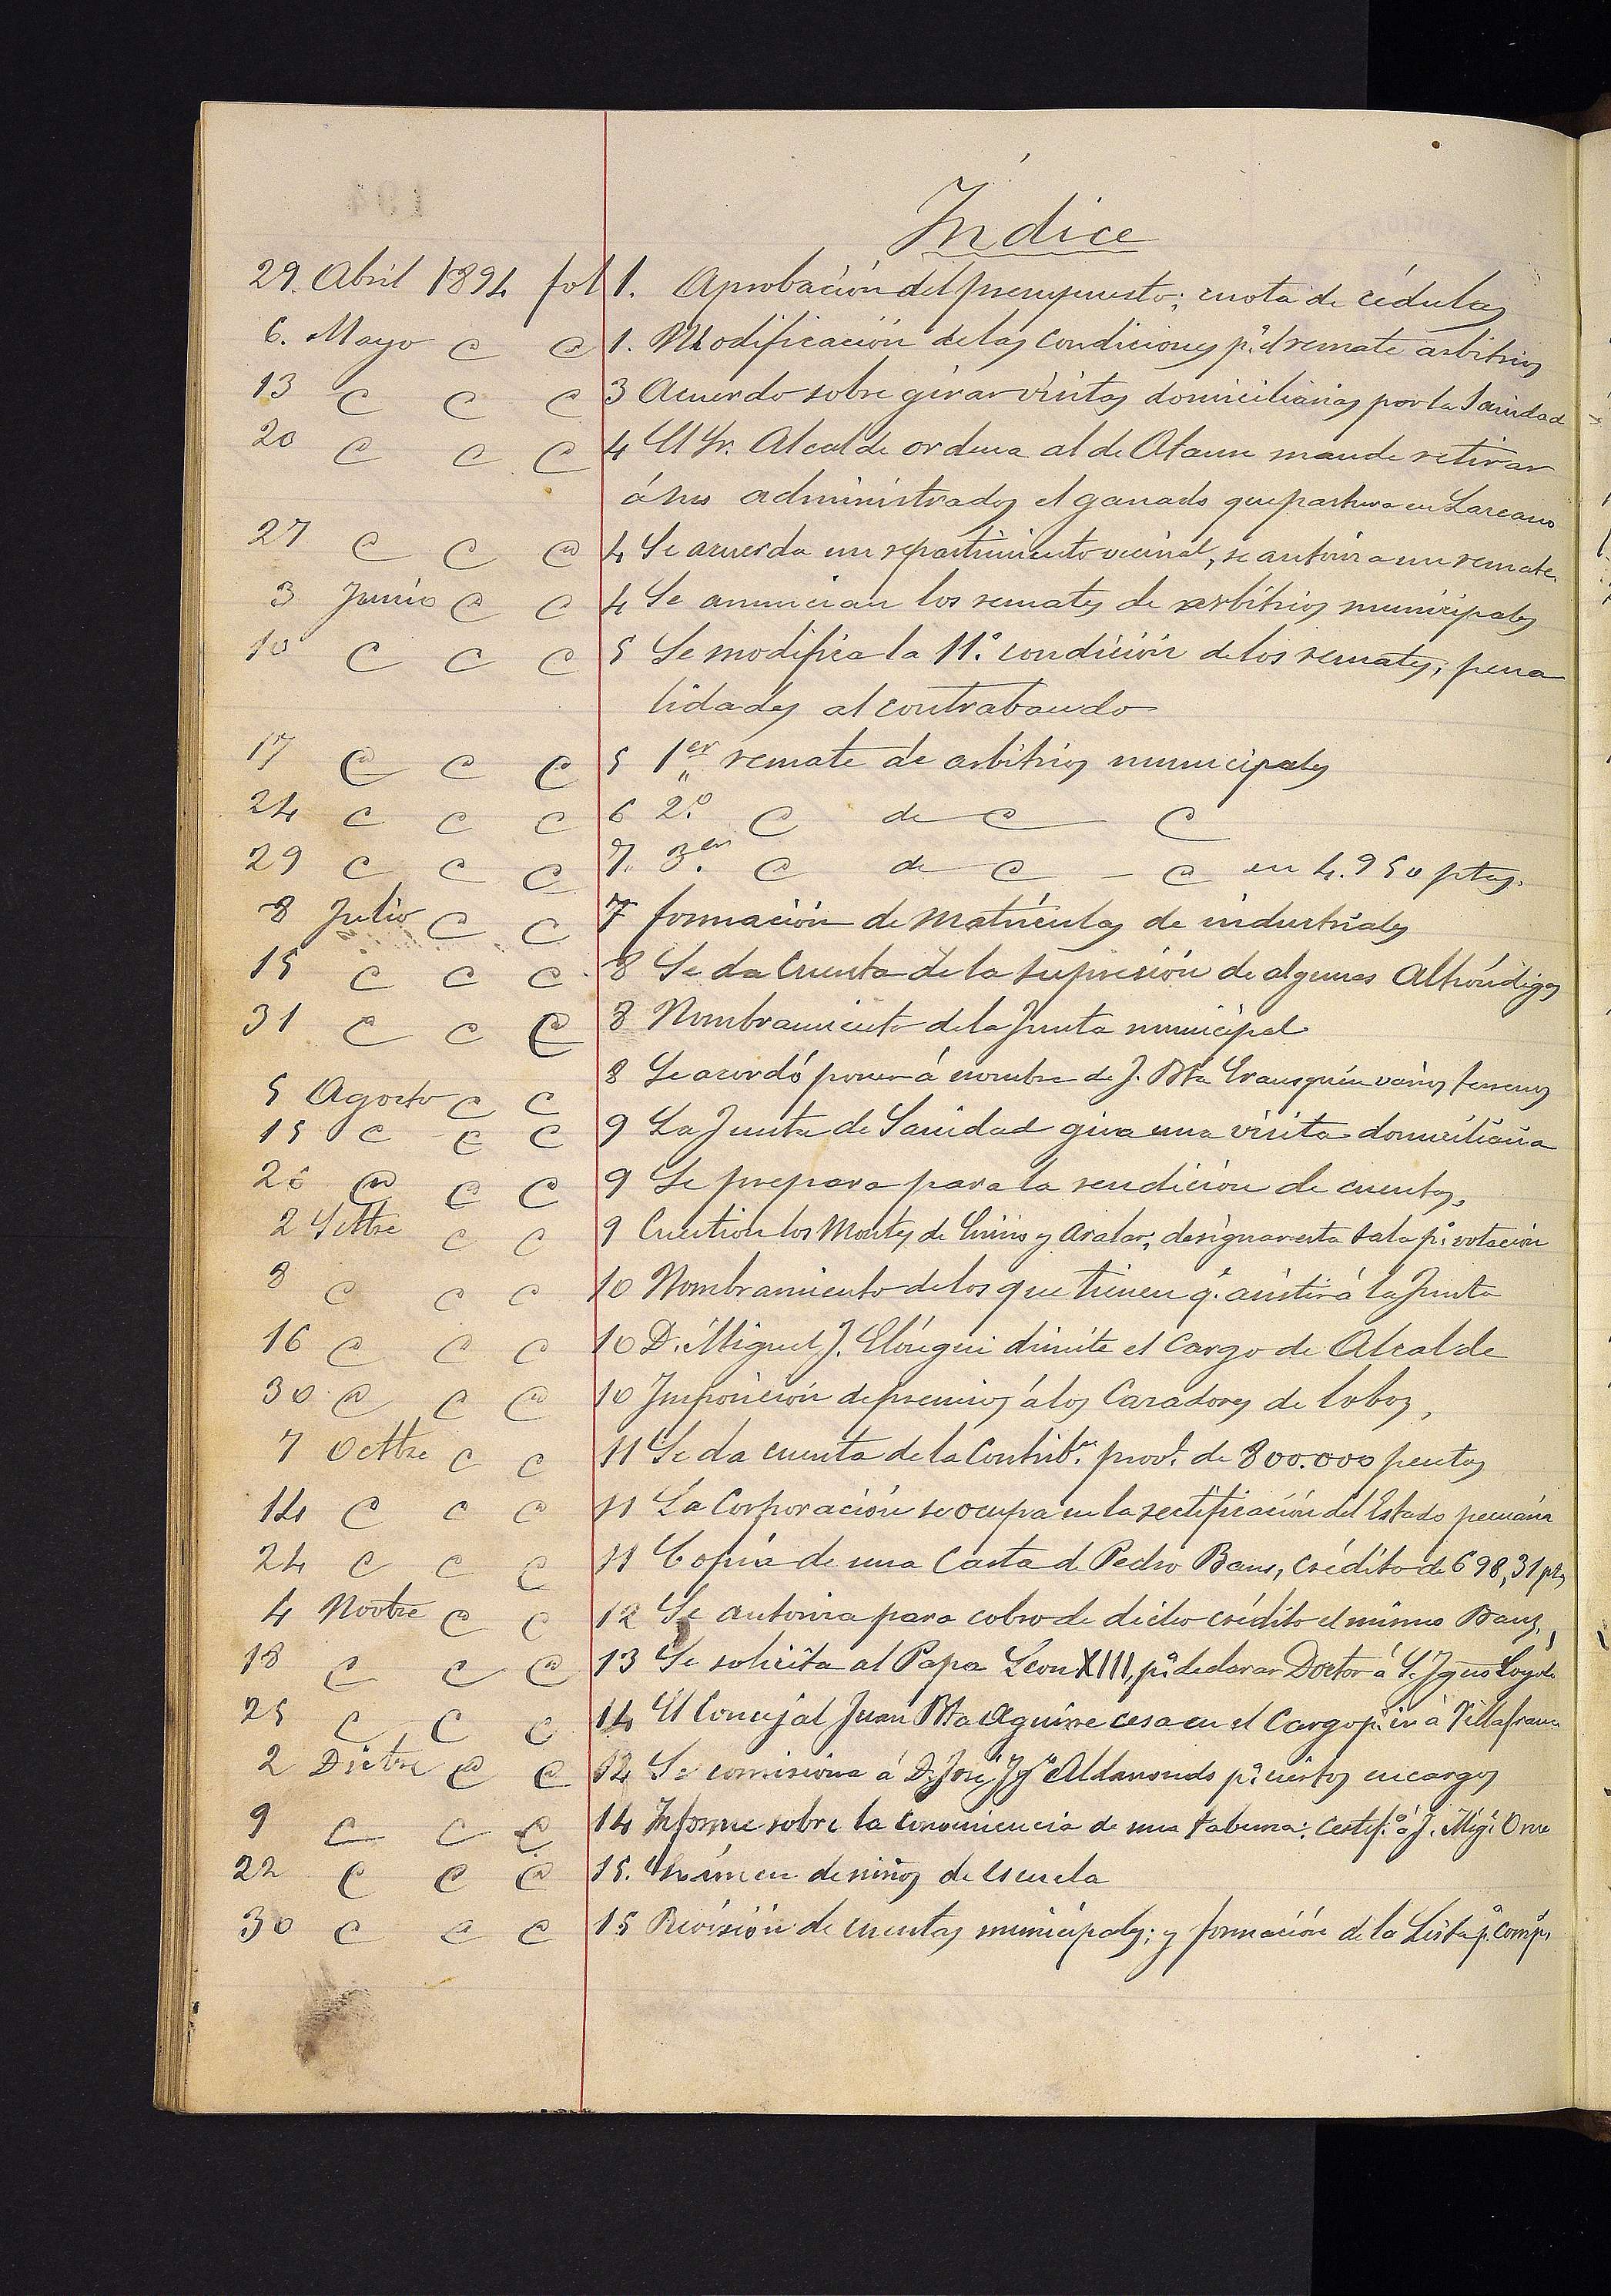 Índice
29. Abril 1894 fol 1. Aprobación del presupuesto; cuota de cédulas
6. Mayo " " 1. Modificación de las condiciones p.ª el remate arbitrios
13 " " " 3 Acuerdo sobre girar visitas domiciliarias por la Sanidad
20 " " " 4 El Sr. Alcalde ordena al de Ataun mande retirar
á sus administrados el ganado que pastura en Lazcano
27 " " " 4 Se acuerda un repartimiento vecinal, se autoriza un remate.
3 Junio " " 4 Se anuncian los remates de arbitrios municipales
10 " " " 5 Se modifica la 11.ª condición de los remates; pena
lidades al contrabando
17 " " " 5 1er remate de arbitrios municipales
24 " " " 6 2.º " de " "
29 " " " 7. 3.er " de " - " en 4.950 ptas.
8 Julio " " 7 formación de matrículas de industriales
15 " " " 8 Se da Cuenta de la supresión de algunas Alhóndigas
31 " " " 8 Nombramiento de la Junta municipal
5 Agosto " " 8 Se acordó poner á nombre de J. Bta Irausquin varios terrenos
15 " " " 9 La Junta de Sanidad gira una visita domiciliaria
26 " " " 9 Se prepara para la rendición de cuentas,
2 Settre " " 9 Cuestion los Montes de Enirio y Aralar, designar esta sala p.ª votación
8 " " " 10 Nombramiento de los que tienen q.e asistir á la Junta
16 " " " 10 D. Miguel J. Elósegui dimite el Cargo de Alcalde
30 " " " 10 Imposición de premios á los Cazadores de lobos,
7 Octtre " " 11 Se da cuenta de la Contrib.on prov.l de 800.000 pesetas
14 " " " 11 La Corporación se ocupa en la rectificación del Estado pecuario
24 " " " 11 Copia de una Carta de Pedro Baus, crédito de 698,31 pts
4 Novbre " " 12 Se autoriza para cobro de dicho crédito el mismo Baus,
18 " " " 13 Se solicita al Papa León XIII, p.ª declarar Doctor á S. Ig.no Loyola
25 " " " 14 El Concejal Juan Bta Aguirre cesa en el Cargo p.r ir á Villafranca
2 Dicbre " " 14 Se comisiona á D. José Ig.o Aldanondo p.ª ciertos encargos
9 " " " 14 Informe sobre la conveniencia de una taberna; certif. á J. Mig.l
22 " " " 15. Exámen de niños de escuela
30 " " " 15 Revisión de cuentas municipales; y formación de la Lista p.ª comp.s